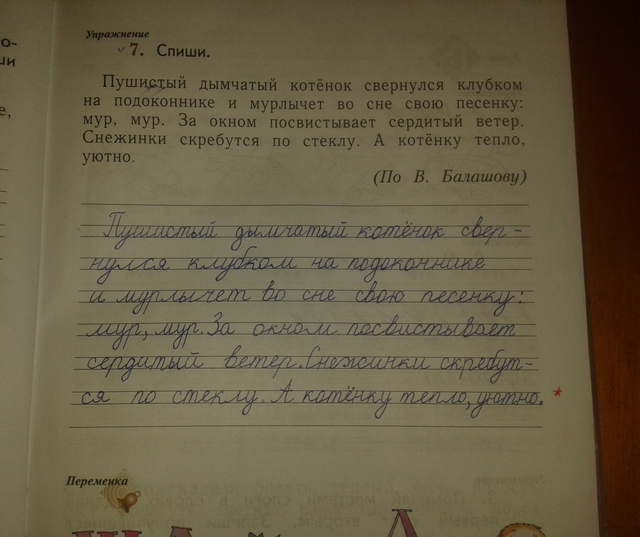 о-
ши
е,
Упражнение
7. Спиши.
Пушистый дымчатый котёнок свернулся клубком
на подоконнике и мурлычет во сне свою песенку:
мур, мур. За окном посвистывает сердитый ветер.
Снежинки скребутся по стеклу. А котёнку тепло,
уютно.
(По В. Балашову)
Пушистый дымчатый котёнок свер-
нулся клубком на подоконнике
и мурлычет во сне свою песенку:
мур, мур. За окном посвистывает
сердитый ветер. Снежинки скребут-
ся по стеклу. А котёнку тепло, уютно.
Переменка